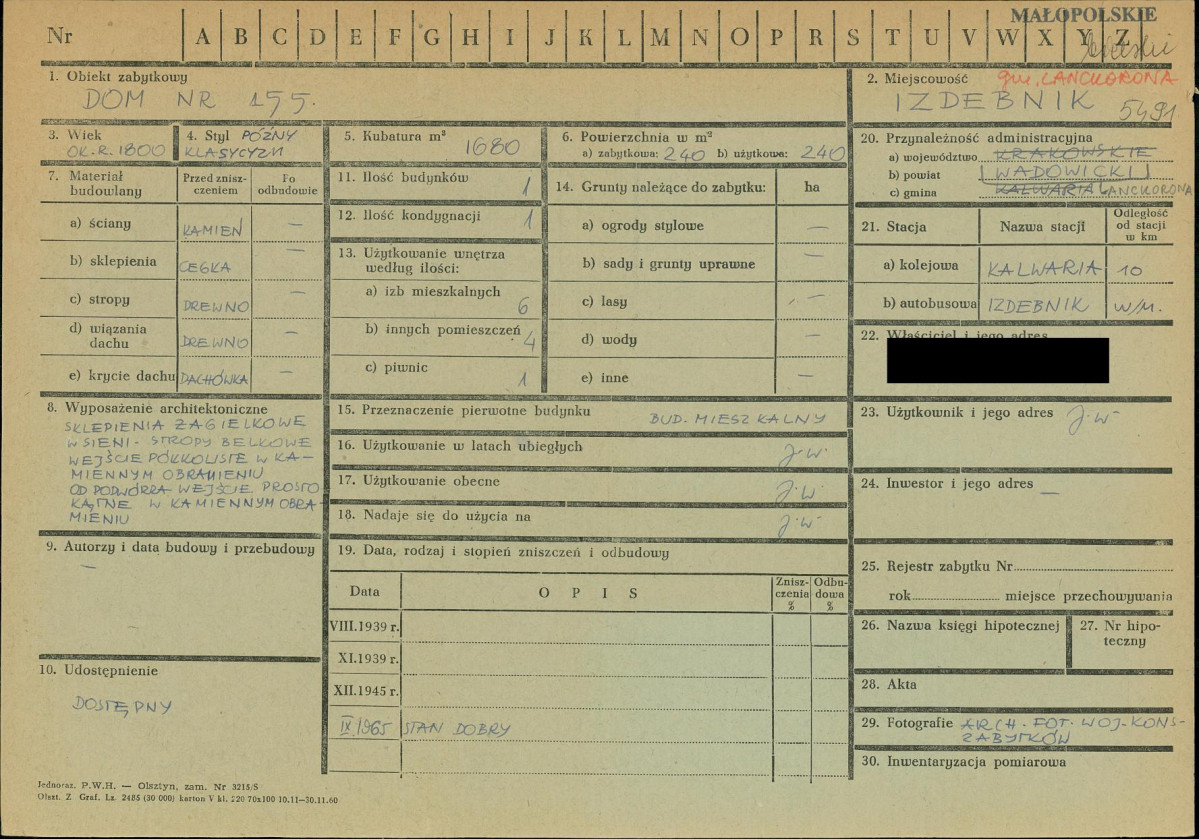 MAŁOPOLSKIE
Nr A B C D E F G H I J K L M N O P R S T U V W X Y Z
1. Obiekt zabytkowy
DOM NR 155.
2. Miejscowość gm. LANCKORONA
IZDEBNIK 5491
3. Wiek
OK. R. 1800
4. Styl PÓŹNY
KLASYCYZM
5. Kubatura m³
1680
6. Powierzchnia w m²
a) zabytkowa: 240 b) użytkowa: 240
7. Materiał budowlany
Przed znisz-
czeniem
Po
odbudowie
a) ściany KAMIEŃ —
b) sklepienia CEGŁA —
c) stropy DREWNO —
d) wiązania
dachu DREWNO —
e) krycie dachu DACHÓWKA —
8. Wyposażenie architektoniczne
SKLEPIENIA ŻAGIELKOWE
W SIENI - STROPY BELKOWE
WEJŚCIE PÓŁKOLISTE W KA-
MIENNYM OBRAMIENIU
OD PODWÓRZA WEJŚCIE PROSTO
KĄTNE W KAMIENNYM OBRA-
MIENIU
9. Autorzy i data budowy i przebudowy
—
10. Udostępnienie
DOSTĘPNY
11. Ilość budynków 1
12. Ilość kondygnacji 1
13. Użytkowanie wnętrza
według ilości:
a) izb mieszkalnych 6
b) innych pomieszczeń 4
c) piwnic 1
14. Grunty należące do zabytku: ha
a) ogrody stylowe —
b) sady i grunty uprawne —
c) lasy —
d) wody —
e) inne —
15. Przeznaczenie pierwotne budynku BUD. MIESZKALNY
16. Użytkowanie w latach ubiegłych j.w.
17. Użytkowanie obecne j.w.
18. Nadaje się do użycia na j.w.
19. Data, rodzaj i stopień zniszczeń i odbudowy
Data OPIS Znisz-
czenia
% Odbu-
dowa
%
VIII.1939 r.
XI.1939 r.
XII.1945 r.
IX.1965 STAN DOBRY
20. Przynależność administracyjna
a) województwo KRAKOWSKIE
b) powiat WADOWICKI
c) gmina KALWARIA LANCKORONA
21. Stacja Nazwa stacji Odległość
od stacji
w km
a) kolejowa KALWARIA 10
b) autobusowa IZDEBNIK W/M.
22. Właściciel i jego adres
23. Użytkownik i jego adres j.w.
24. Inwestor i jego adres —
25. Rejestr zabytku Nr
rok miejsce przechowywania
26. Nazwa księgi hipotecznej
27. Nr hipo-
teczny
28. Akta
29. Fotografie ARCH. FOT. WOJ. KONS-
ZABYTKÓW
30. Inwentaryzacja pomiarowa
Jednoraz. P.W.H. — Olsztyn, zam. Nr 3215/S
Olszt. Z Graf. Lz. 2485 (30 000) karton V kl. 220 70x100 10.11—30.11.60